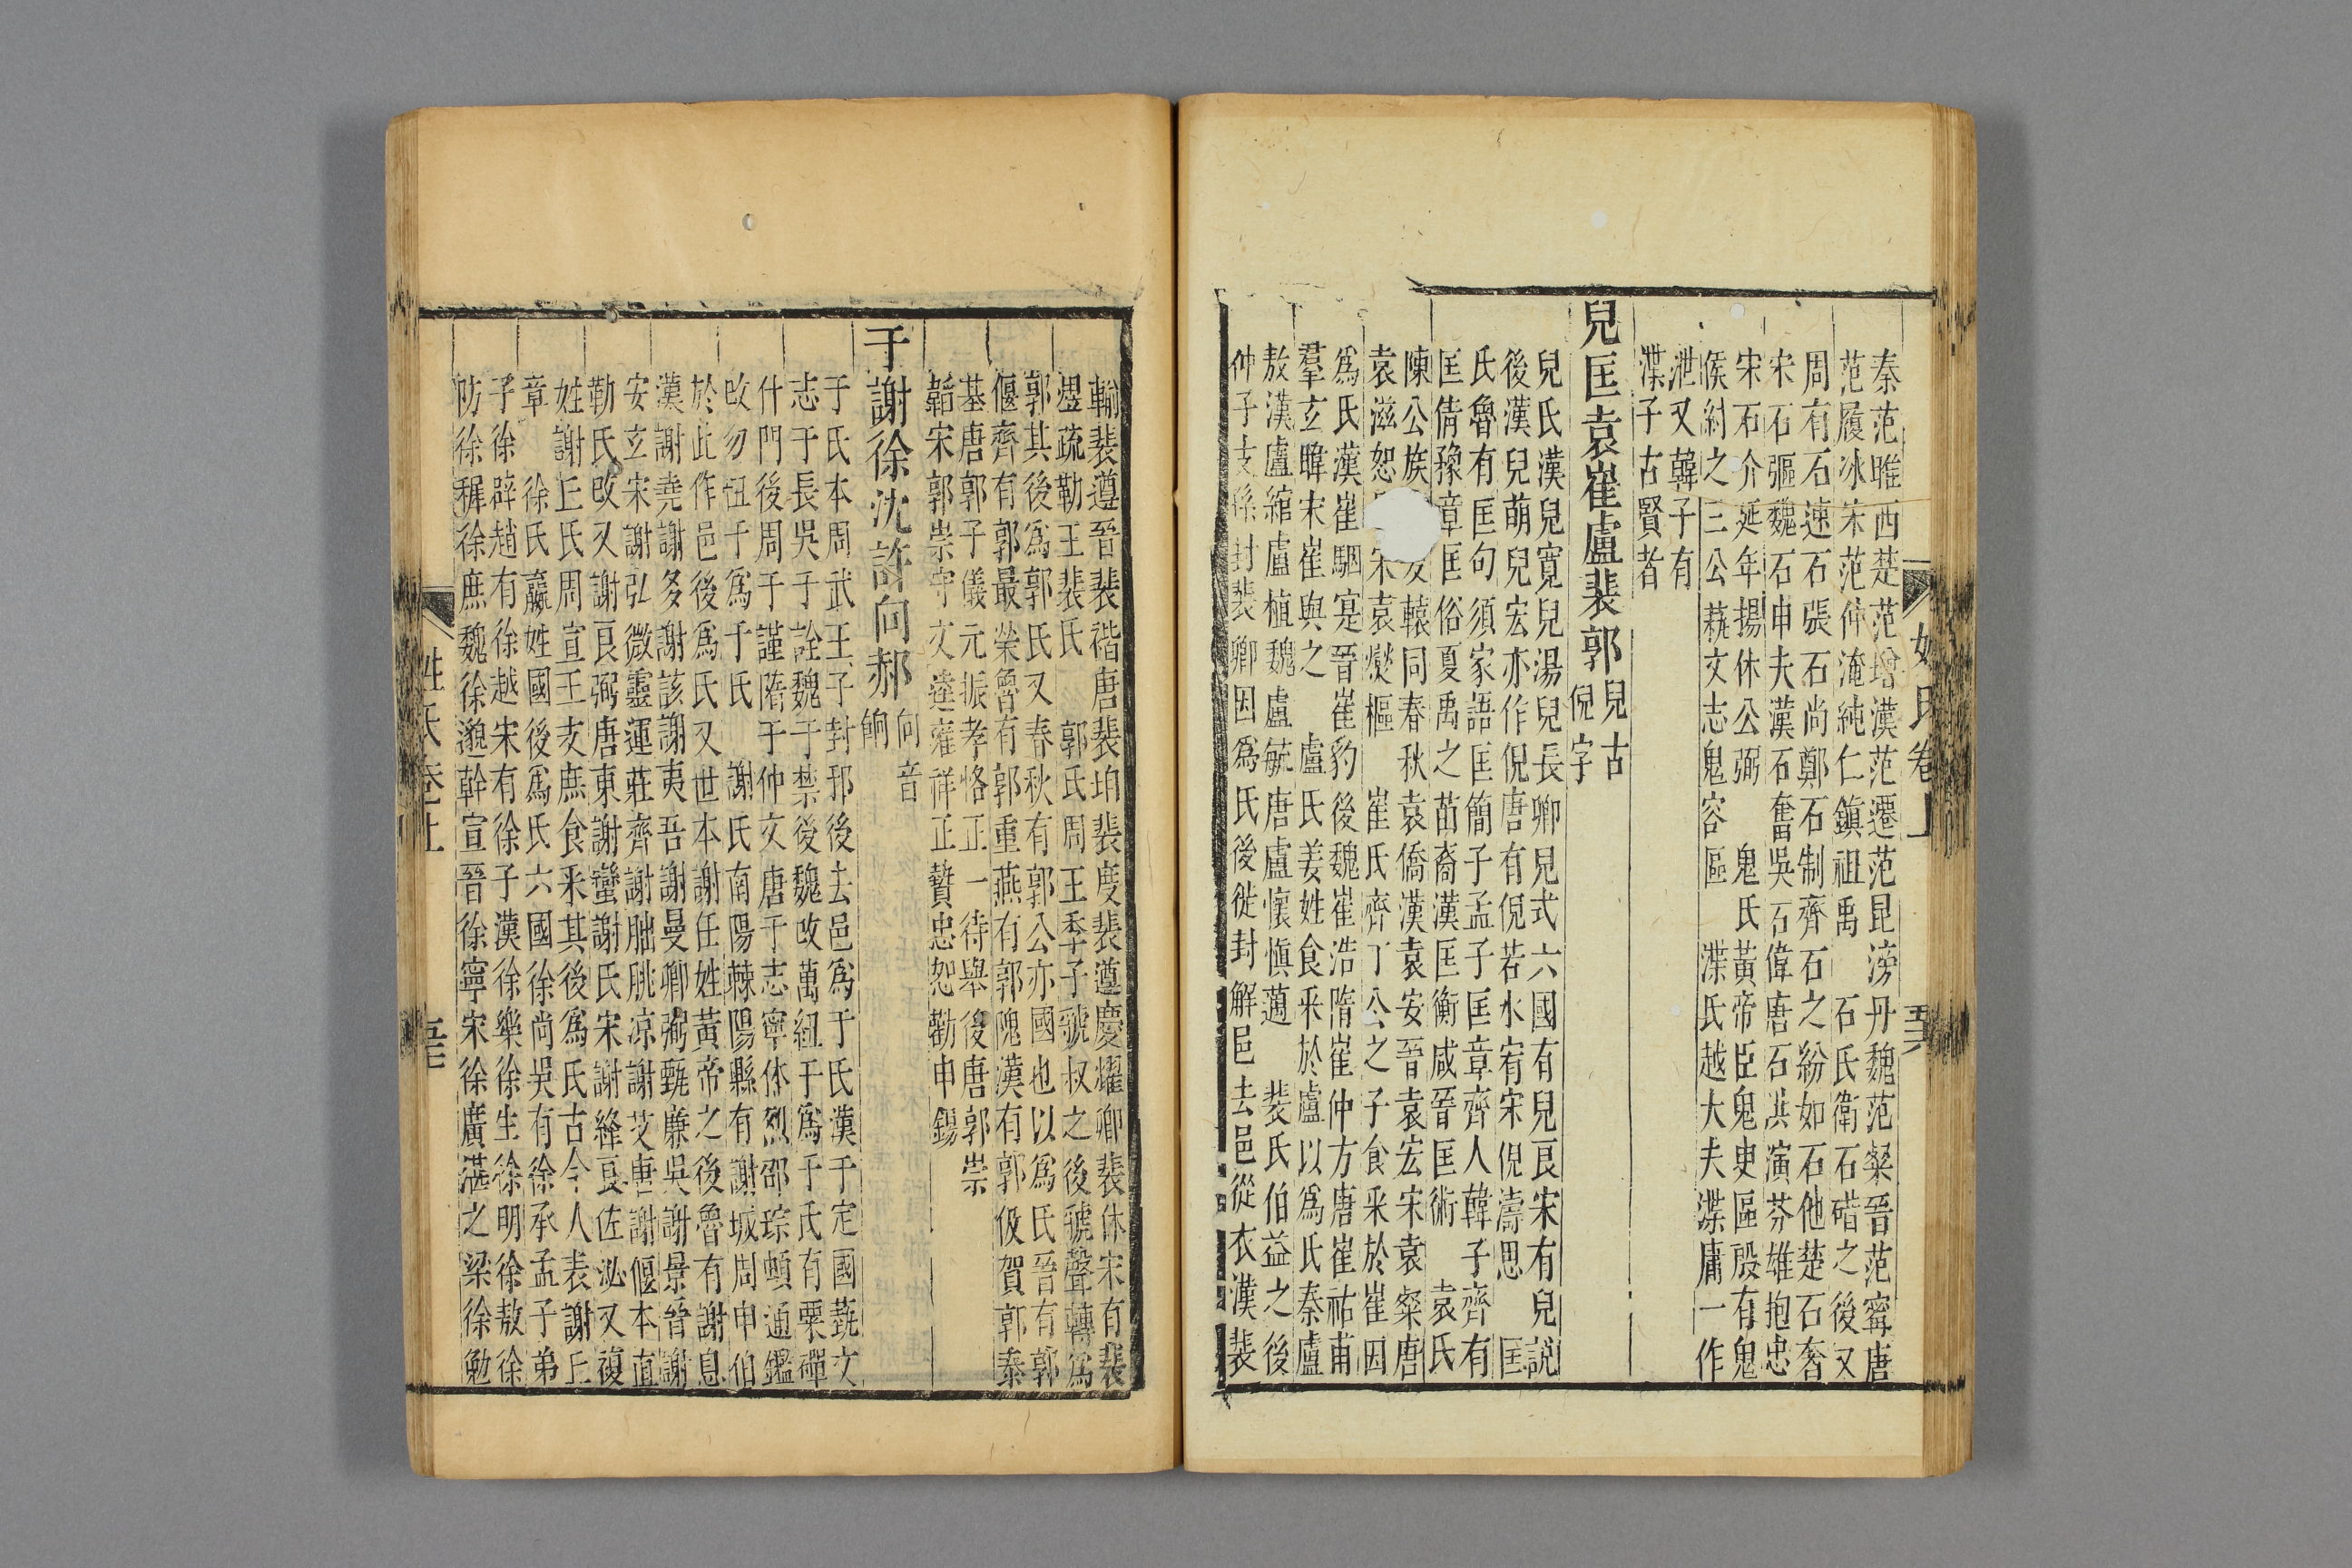 秦范睢西楚范增漢范遷范昆滂丹魏范粲晉范甯唐
范履冰宋范仲淹純仁鎮祖禹 石氏衛石碏之後又
周有石速石張石尚鄭石制齊石之紛如石他楚石奢
宋石彄魏石申夫漢石奮吳石偉唐石洪演芬雄抱忠
宋石介延年揚休公弼 鬼氏黃帝臣鬼臾區殷有鬼
侯紂之三公蓺文志鬼容區 渫氏越大夫渫庸一作
泄又韓子有
渫子古賢者
兒匡袁崔盧裴郭 兒古
倪字
兒氏漢兒寬兒湯兒長卿兒式六國有兒良宋有兒說
後漢兒萌兒宏亦作倪唐有倪若水宥宋倪濤思 匡
氏魯有匡句須家語匡簡子孟子匡章齊人韓子齊有
匡倩豫章匡俗夏禹之苗裔漢匡衡咸晉匡術 袁氏
陳公族 轅同春秋袁僑漢袁安晉袁宏宋袁粲唐
袁滋恕 宋袁爕樞 崔氏齊丁公之子食采於崔因
爲氏漢崔駰寔晉崔豹後魏崔浩隋崔仲方唐崔祐甫
羣玄暐宋崔與之 盧氏姜姓食采於盧以爲氏秦盧
敖漢盧綰盧植魏盧毓唐盧懷愼邁 裴氏伯益之後
仲子支孫封裴鄉因爲氏後徙封解邑去邑從衣漢裴
姓氏卷上
輸裴遵晉裴楷唐裴垍裴度裴遵慶耀卿裴休宋有裴
煜疏勒王裴氏 郭氏周王季子虢叔之後虢聲轉爲
郭其後爲郭氏又春秋有郭公亦國也以爲氏晉有郭
偃齊有郭最榮魯有郭重燕有郭隗漢有郭伋賀郭泰
基唐郭子儀元振孝恪正一待舉後唐郭崇
韜宋郭崇守文逵雍祥正贄忠恕勸申錫
于謝徐沈許向郝 向音
餉
于氏本周武王子封邘後去邑爲于氏漢于定國蓺文
志于長吳于詮魏于禁後魏改萬紐于爲于氏有栗磾
什門後周于謹隋于仲文唐于志寧休烈邵琮頔通鑑
改勿忸于爲于氏 謝氏南陽棘陽縣有謝城周申伯
於此作邑後爲氏又世本謝任姓黃帝之後魯有謝息
漢謝堯謝多謝該謝夷吾謝曼卿弼甄廉吳謝景晉謝
安玄宋謝弘微靈運莊齊謝朏朓涼謝艾唐謝偃本直
勒氏改又謝良弼唐東謝蠻謝氏宋謝絳良佐泌又複
姓謝丘氏周宣王支庶食采其後爲氏古今人表謝丘
章 徐氏嬴姓國後爲氏六國徐尚吳有徐承孟子弟
子徐辟趙有徐越宋有徐子漢徐樂徐生徐明徐敖徐
防徐穉徐庶魏徐邈幹宣晉徐寧宋徐廣湛之梁徐勉
姓氏卷上